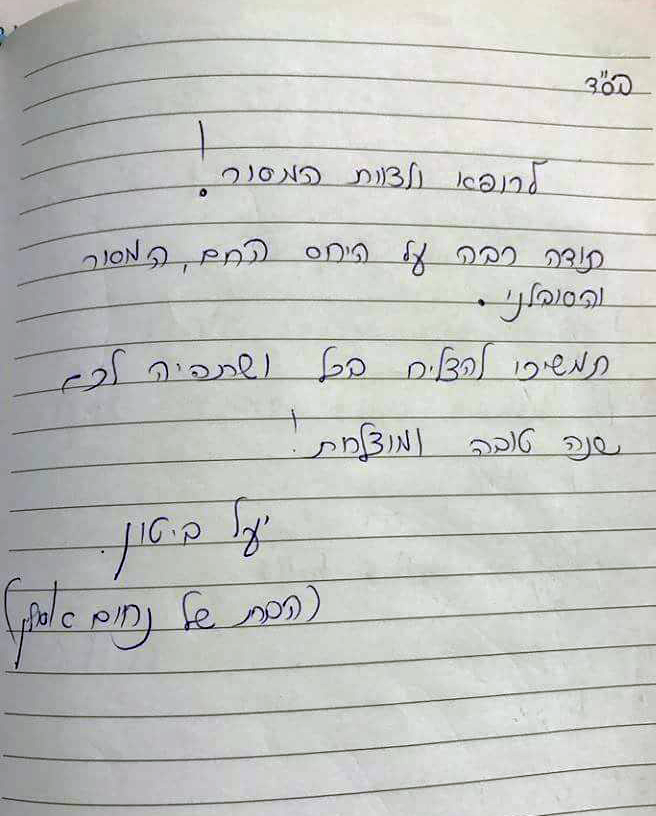 בס"ד
לרופא ולצוות המסור!
תודה רבה על היחס החם, המסור
והסובלני.
תמשיכו להצליח בכל ושתהיה לכם
שנה טובה ומוצלחת!
יעל ביטון.
(הבת של נחום)